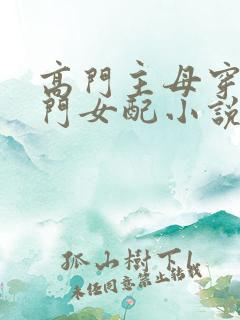 高門主母穿
門女配小説
孤山樹下1
未经同意禁止转载